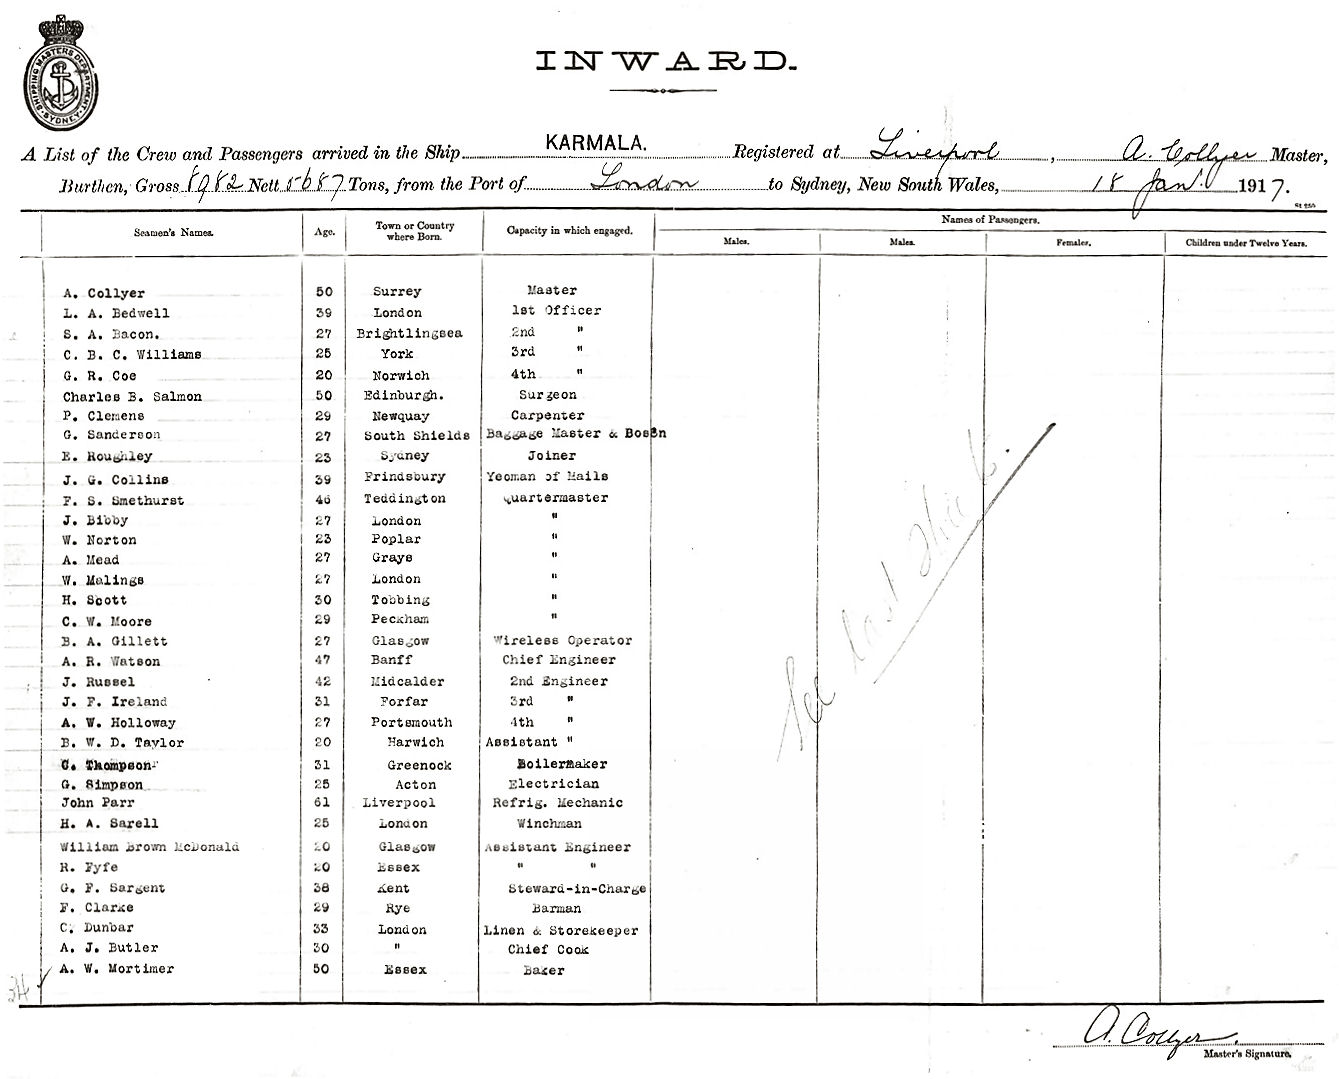 SHIPPING MASTERS DEPARTMENT SYDNEY
INWARD.
A List of the Crew and Passengers arrived in the Ship KARMALA. Registered at Liverpool, A. Collyer Master,
Burthen, Gross 8982 Nett 5687 Tons, from the Port of London to Sydney, New South Wales, 18 Jan. 1917.
St 255
Seamen's Names. Age. Town or Country where Born. Capacity in which engaged. Names of Passengers.
Males. Males. Females. Children under Twelve Years.
A. Collyer 50 Surrey Master
L. A. Bedwell 39 London 1st Officer
S. A. Bacon. 27 Brightlingsea 2nd "
C. B. C. Williams 25 York 3rd "
G. R. Coe 20 Norwich 4th "
Charles B. Salmon 50 Edinburgh. Surgeon
P. Clemens 29 Newquay Carpenter
G. Sanderson 27 South Shields Baggage Master & Bosn
E. Roughley 23 Sydney Joiner
J. G. Collins 39 Frindsbury Yeoman of Mails
F. S. Smethurst 46 Teddington Quartermaster
J. Bibby 27 London "
W. Norton 23 Poplar "
A. Mead 27 Grays "
W. Malings 27 London "
H. Scott 30 Tobbing "
C. W. Moore 29 Peckham "
B. A. Gillett 27 Glasgow Wireless Operator
A. R. Watson 47 Banff Chief Engineer
J. Russel 42 Midcalder 2nd Engineer
J. F. Ireland 31 Forfar 3rd "
A. W. Holloway 27 Portsmouth 4th "
B. W. D. Taylor 20 Harwich Assistant "
C. Thompson 31 Greenock Boilermaker
G. Simpson 25 Acton Electrician
John Parr 61 Liverpool Refrig. Mechanic
H. A. Sarell 25 London Winchman
William Brown McDonald 20 Glasgow Assistant Engineer
R. Fyfe 20 Essex " "
G. F. Sargent 38 Kent Steward-in-Charge
F. Clarke 29 Rye Barman
C. Dunbar 33 London Linen & Storekeeper
A. J. Butler 30 " Chief Cook
A. W. Mortimer 50 Essex Baker
34 ✓
See last Sheet.
A. Collyer.
Master's Signature.